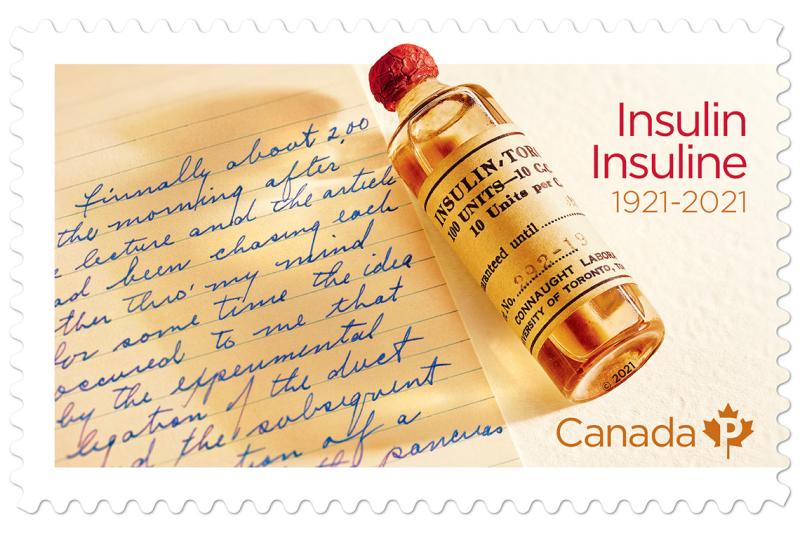 finnally about 2.00
the morning after
lecture and the article
ad been chasing each
ther thro' my mind
for some time the idea
occured to me that
by the experimental
ligation of the duct
d the subsequent
tion of a
the pancreas
INSULIN, TORO
100 UNITS—10 C.C.
10 Units per C
aranteed until
No. 292-19
CONNAUGHT LABORA
VERSITY OF TORONTO, TO
© 2021
Insulin
Insuline
1921-2021
Canada P